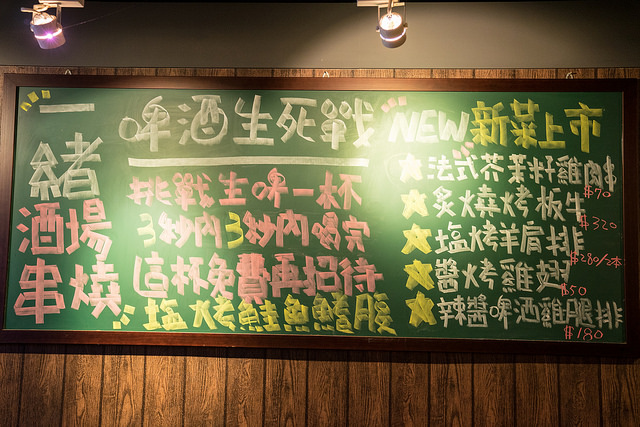 一緒
酒場
串燒
啤酒生死戰
挑戰生啤一杯
3秒內3秒內喝完
這杯免費再招待
塩烤鮭魚鰭腹
NEW新菜上市
法式芥茉籽雞肉串
$70
炙燒烤板牛
$320
塩烤羊肩排
$280/2本
醬烤雞翅
$50
辣醬啤酒雞腿排
$180